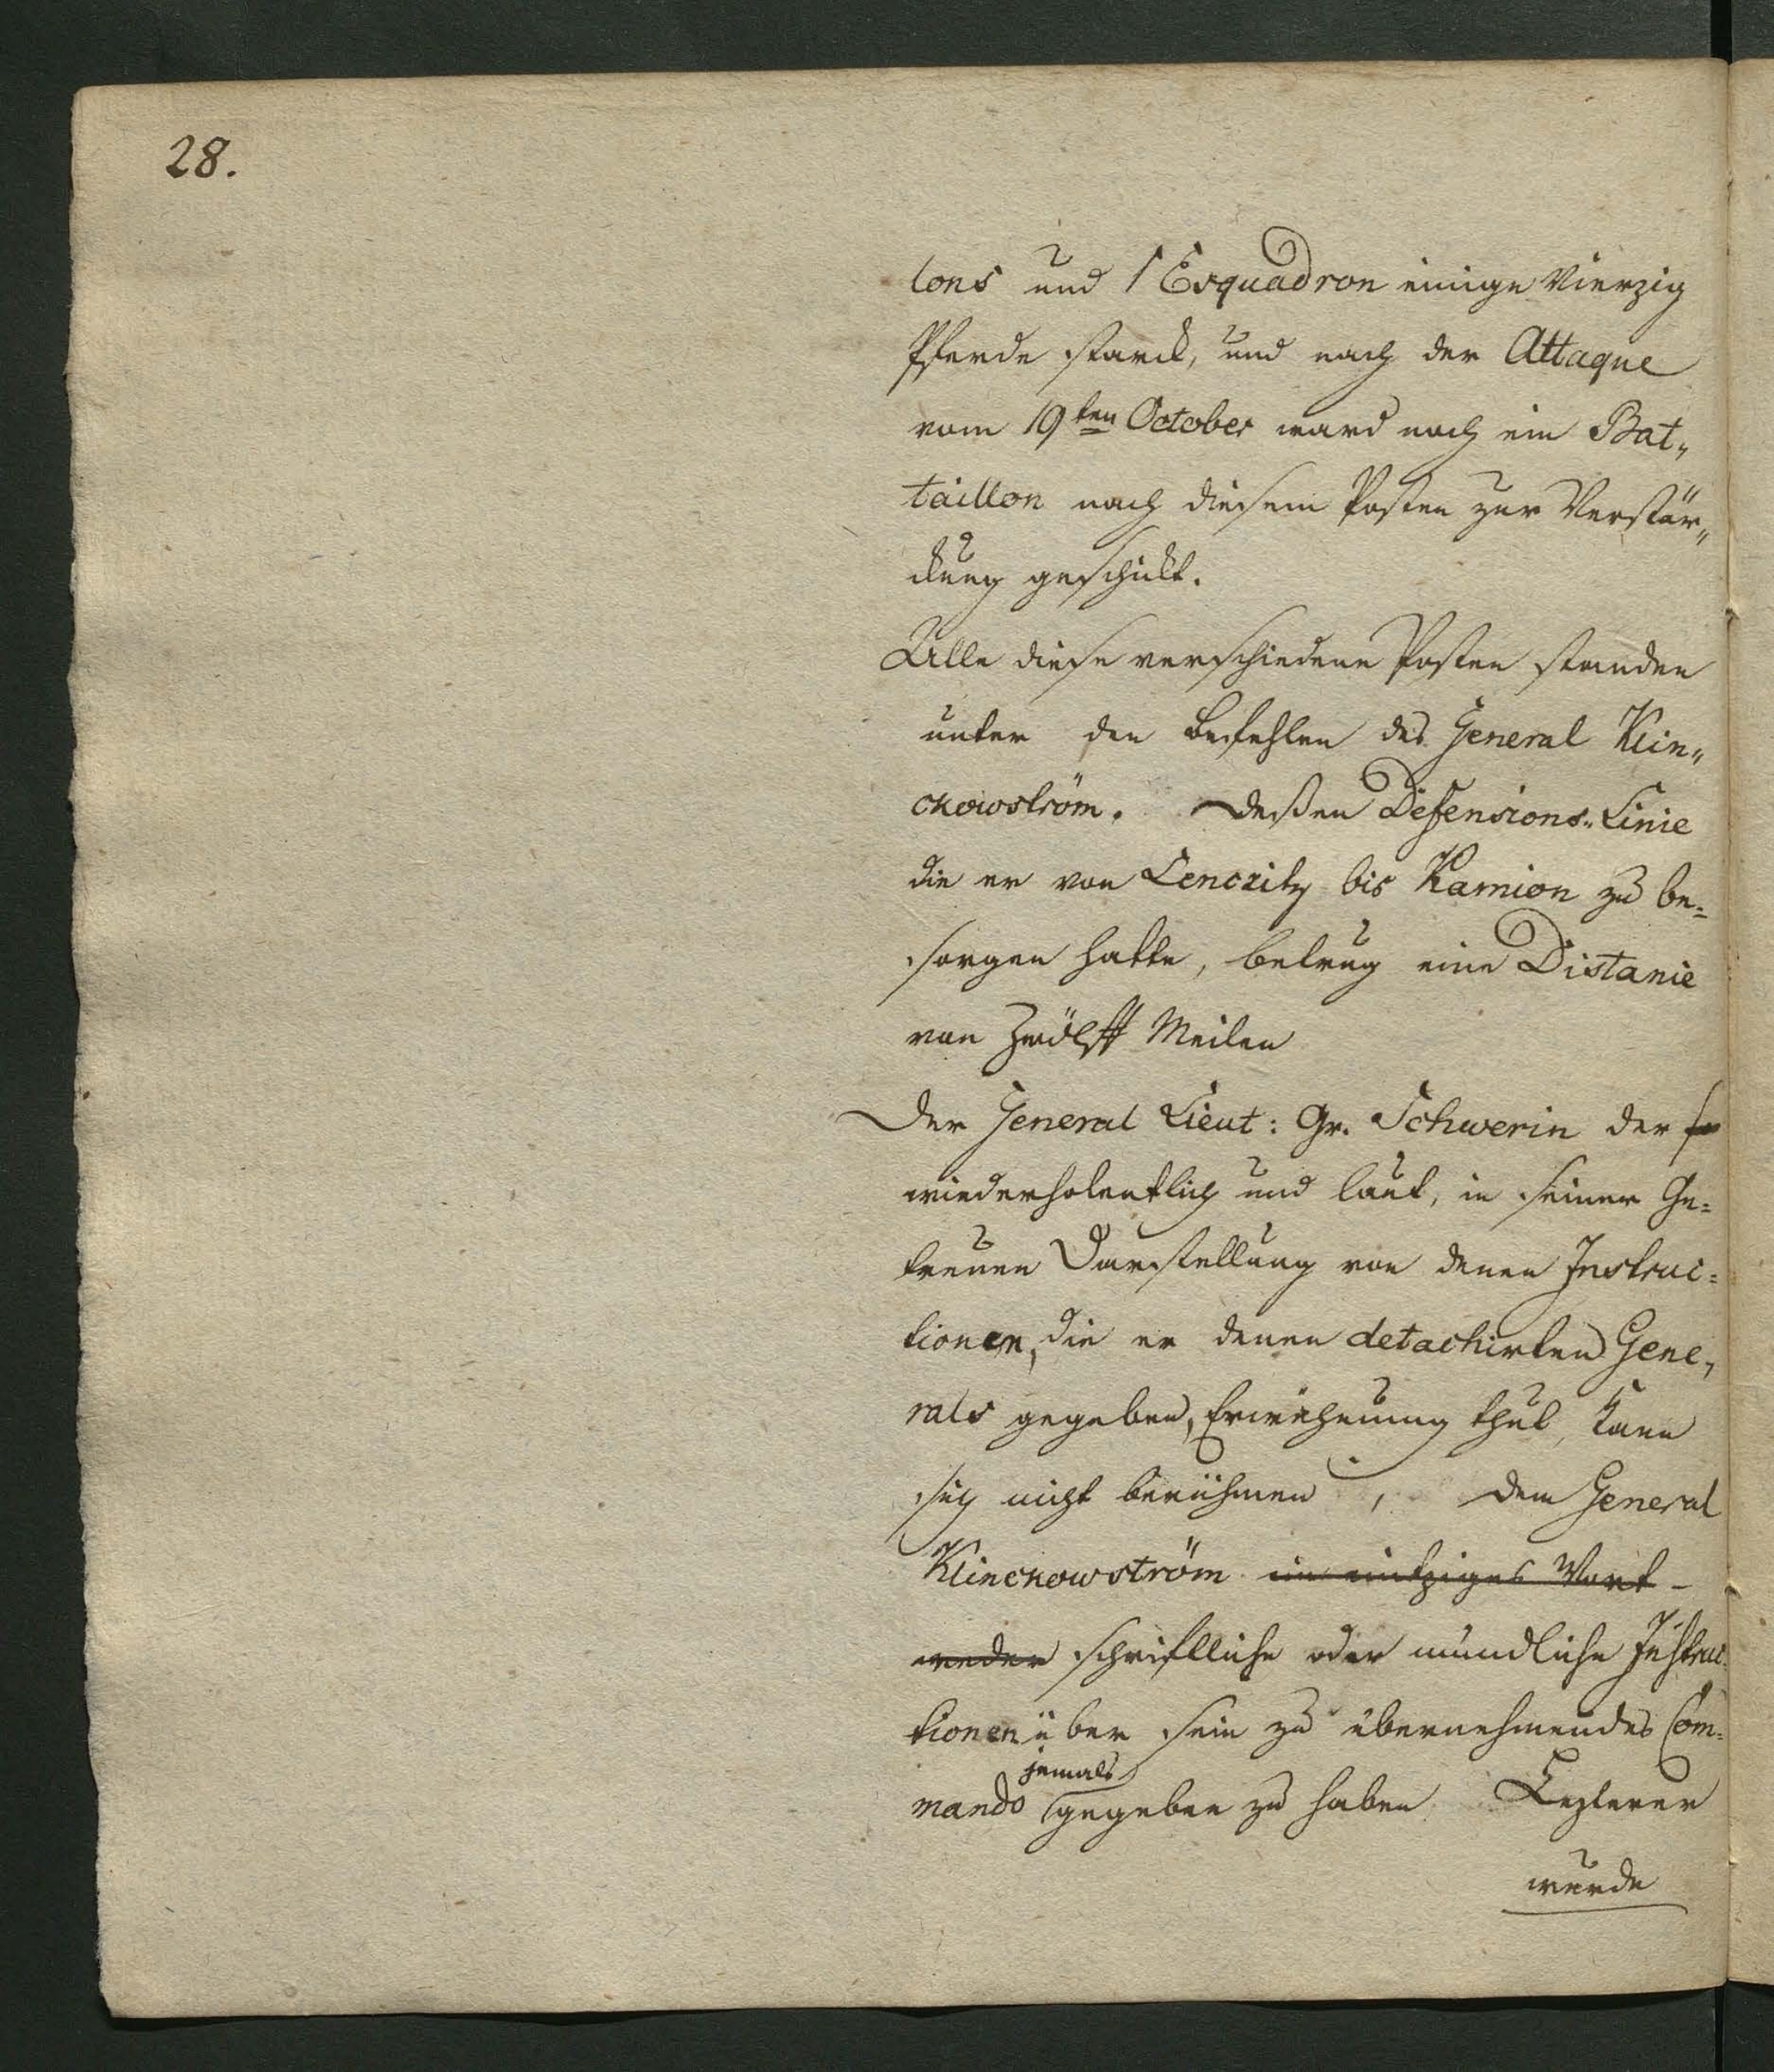 28.
lons und 1 Esquadron einige Vierzig
Pferde starck, und nach der Attaque
vom 19ten October ward noch ein Bat„
taillon nach diesem Posten zur Verstär„
ckung geschickt.
Alle diese verschiedene Posten standen
unter den Befehlen des General Klin„
ckowström. Deßen Defensions„Linie
die er von Lenczitz bis Kamion zu be=
sorgen hatte, betrug eine Distance
von Zwölff Meilen
Der General Lieut: Gr. Schwerin der so
wiederholentlich und laut, in seiner Ge=
treuen Darstellung von denen Instruc=
tionen, die er denen detachirten Gene„
rals gegeben, Erwehnung thut, kann
sich nicht berühmen, dem General
Klinckowström ein eintziges Wort –
weder schriftliche oder mündliche Instruc=
tionen über sein zu übernehmendes Com=
jemals
mando gegeben zu haben Lezterer
wurde